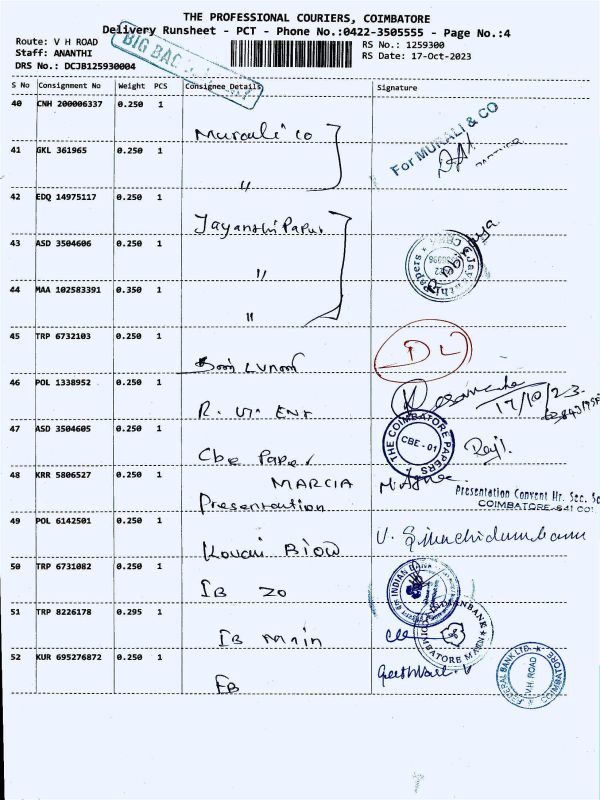 THE PROFESSIONAL COURIERS, COIMBATORE
Delivery Runsheet - PCT - Phone No.:0422-3505555 - Page No.:4
Route: V H ROAD
Staff: ANANTHI
DRS No.: DCJB125930004
BIG BAG
RS No.: 1259300
RS Date: 17-Oct-2023
S No Consignment No Weight PCS Consignee Details Signature
40 CNH 200006337 0.250 1
Murali co
For MURALI & CO
PARTNER
41 GKL 361965 0.250 1
"
42 EDQ 14975117 0.250 1
Jayanthi Paper
43 ASD 3504606 0.250 1
"
44 MAA 102583391 0.350 1
"
45 TRP 6732103 0.250 1
DL
46 POL 1338952 0.250 1
R. Ent
17/10/23
47 ASD 3504605 0.250 1
Cbe Paper
THE COIMBATORE PAPERS
CBE - 01
48 KRR 5806527 0.250 1
MARCIA
Presentation
Presentation Convent Hr. Sec. Sc
COIMBATORE-641 001
49 POL 6142501 0.250 1
Kovai Blow
50 TRP 6731082 0.250 1
IB ZO
INDIAN BANK
51 TRP 8226178 0.295 1
IB Main
INDIAN BANK
COIMBATORE MAIN
52 KUR 695276872 0.250 1
FB
FEDERAL BANK LTD.
V.H. ROAD
COIMBATORE